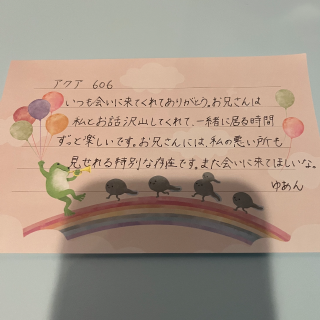 アクア 606
いつも会いに来てくれてありがとう。お兄さんは
私とお話沢山してくれて、一緒に居る時間
ずっと楽しいです。お兄さんには、私の悪い所も
見せれる特別な存在です。また会いに来てほしいな。
ゆあん